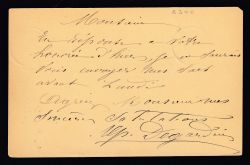 Monsieur
En réponse à votre
honorée d'hier, je ne saurais
vous envoyer mes
avant Lundi
Agréez Monsieur mes
sincères Salutations